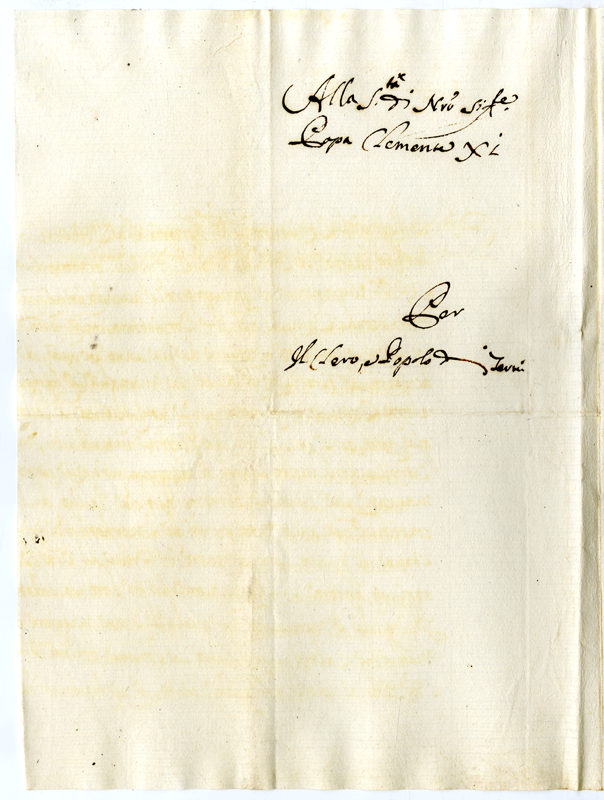 Alla S.tà di Nrõ Sig.re
Papa Clemente XI
Per
Il Clero, e Popolo di Terni